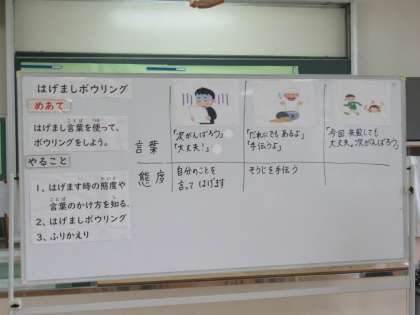 はげましボウリング
めあて
はげまし言葉を使って、
ボウリングをしよう。
やること
1、はげます時の態度や
言葉のかけ方を知る。
2、はげましボウリング
3、ふりかえり
言葉
「次がんばろう」
「大丈夫!」
「だれにでもあるよ」
「手伝うよ」
「今回失敗しても
大丈夫。次がんばろう」
態度
自分のことを
言ってはげます
そうじを手伝う